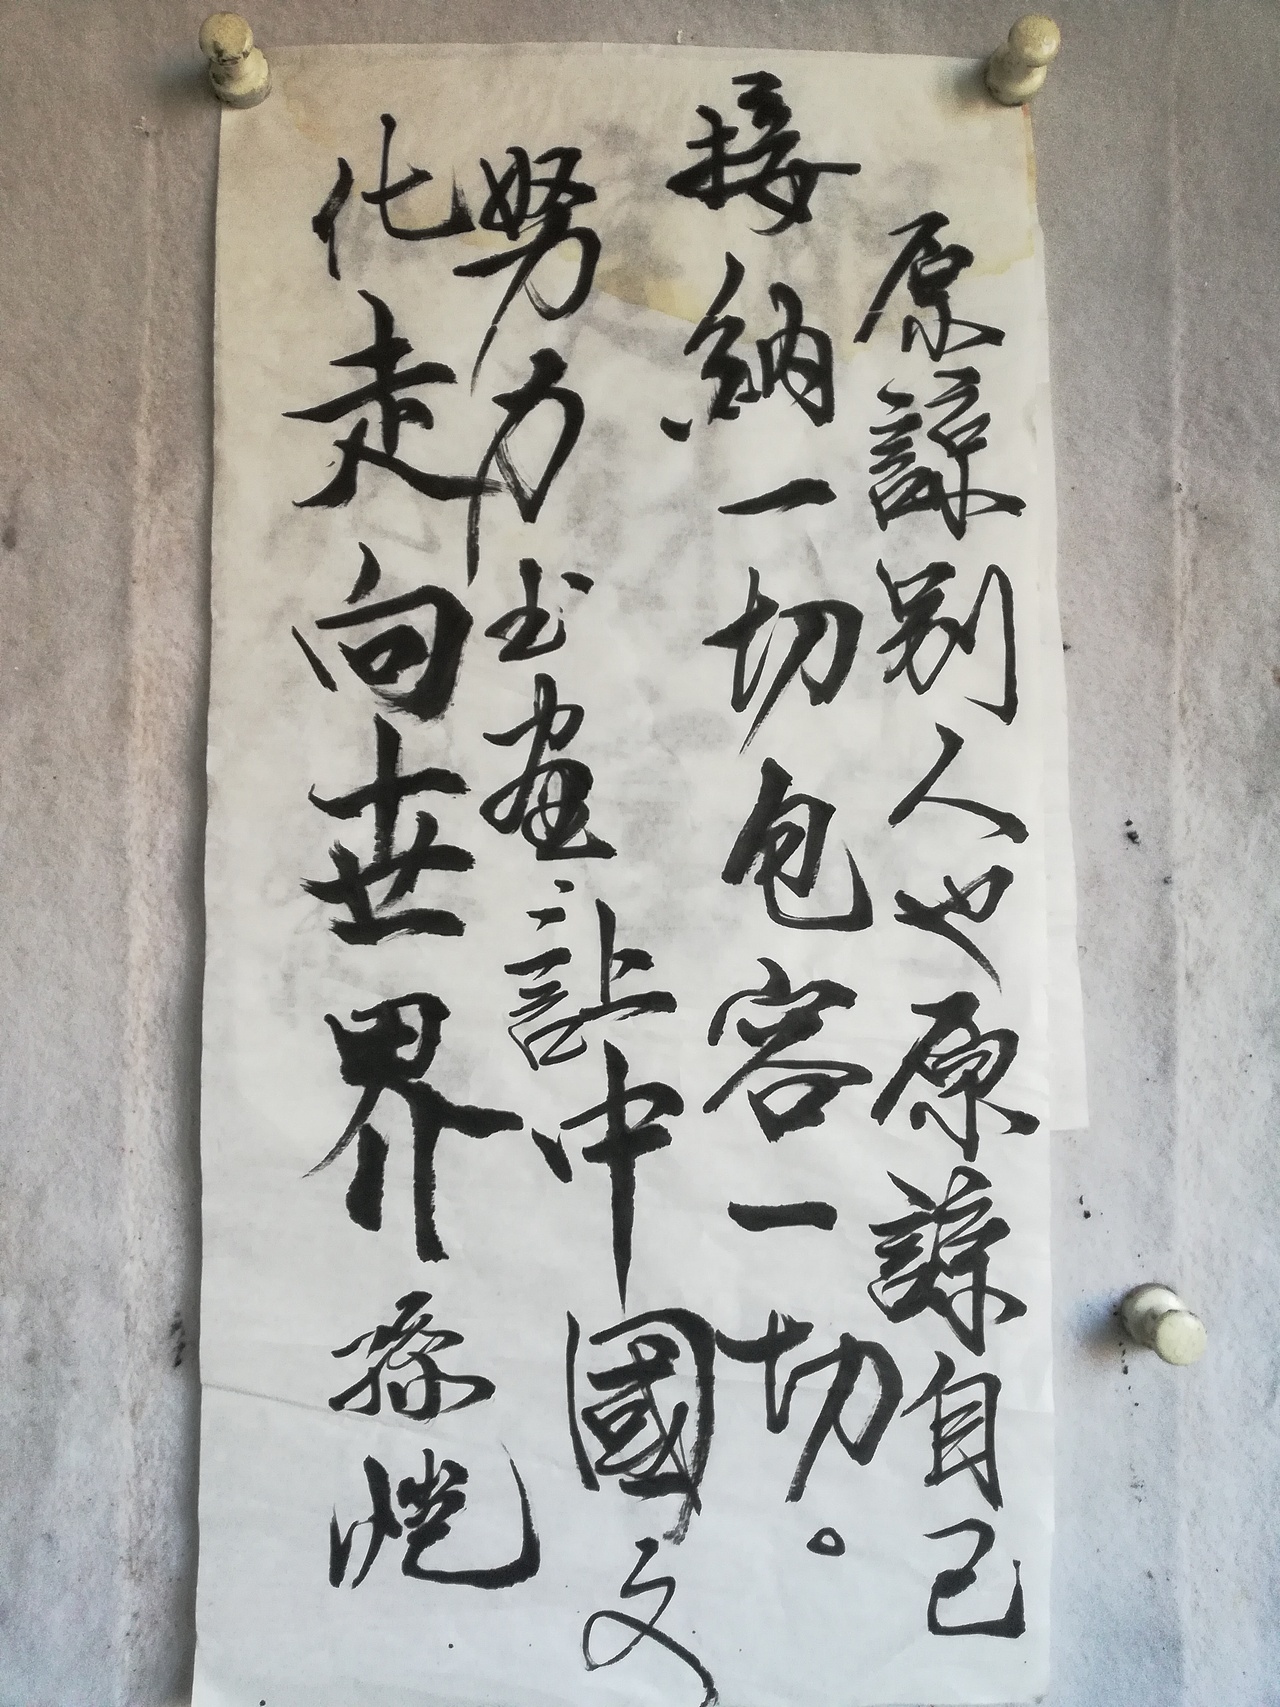 原諒别人也原諒自己
接納一切包容一切。
努力書畫讓中國文
化走向世界孫愷